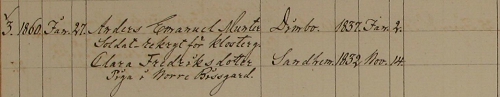 1/3. 1860. Jan. 27. Anders Emanuel Munter Dimbo. 1837. Jan. 2.
Soldat-rekryt för Klosterg.
Clara Fredriksdotter Sandhem. 1832. Nov. 14.
Piga i Norre Bissgard.